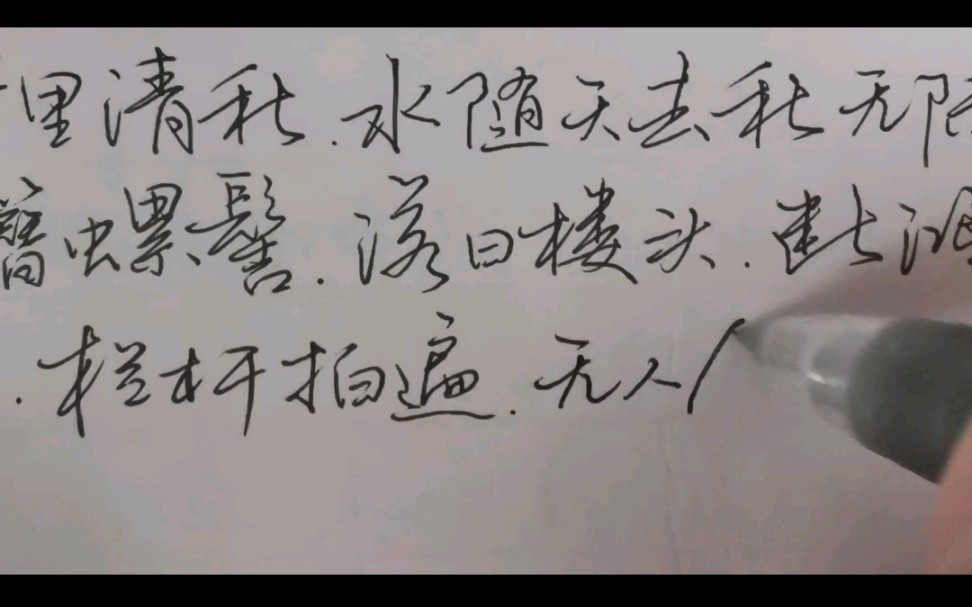 里清秋.水随天去秋无限
簪螺髻.落日楼头.断鸿
.栏杆拍遍.无人